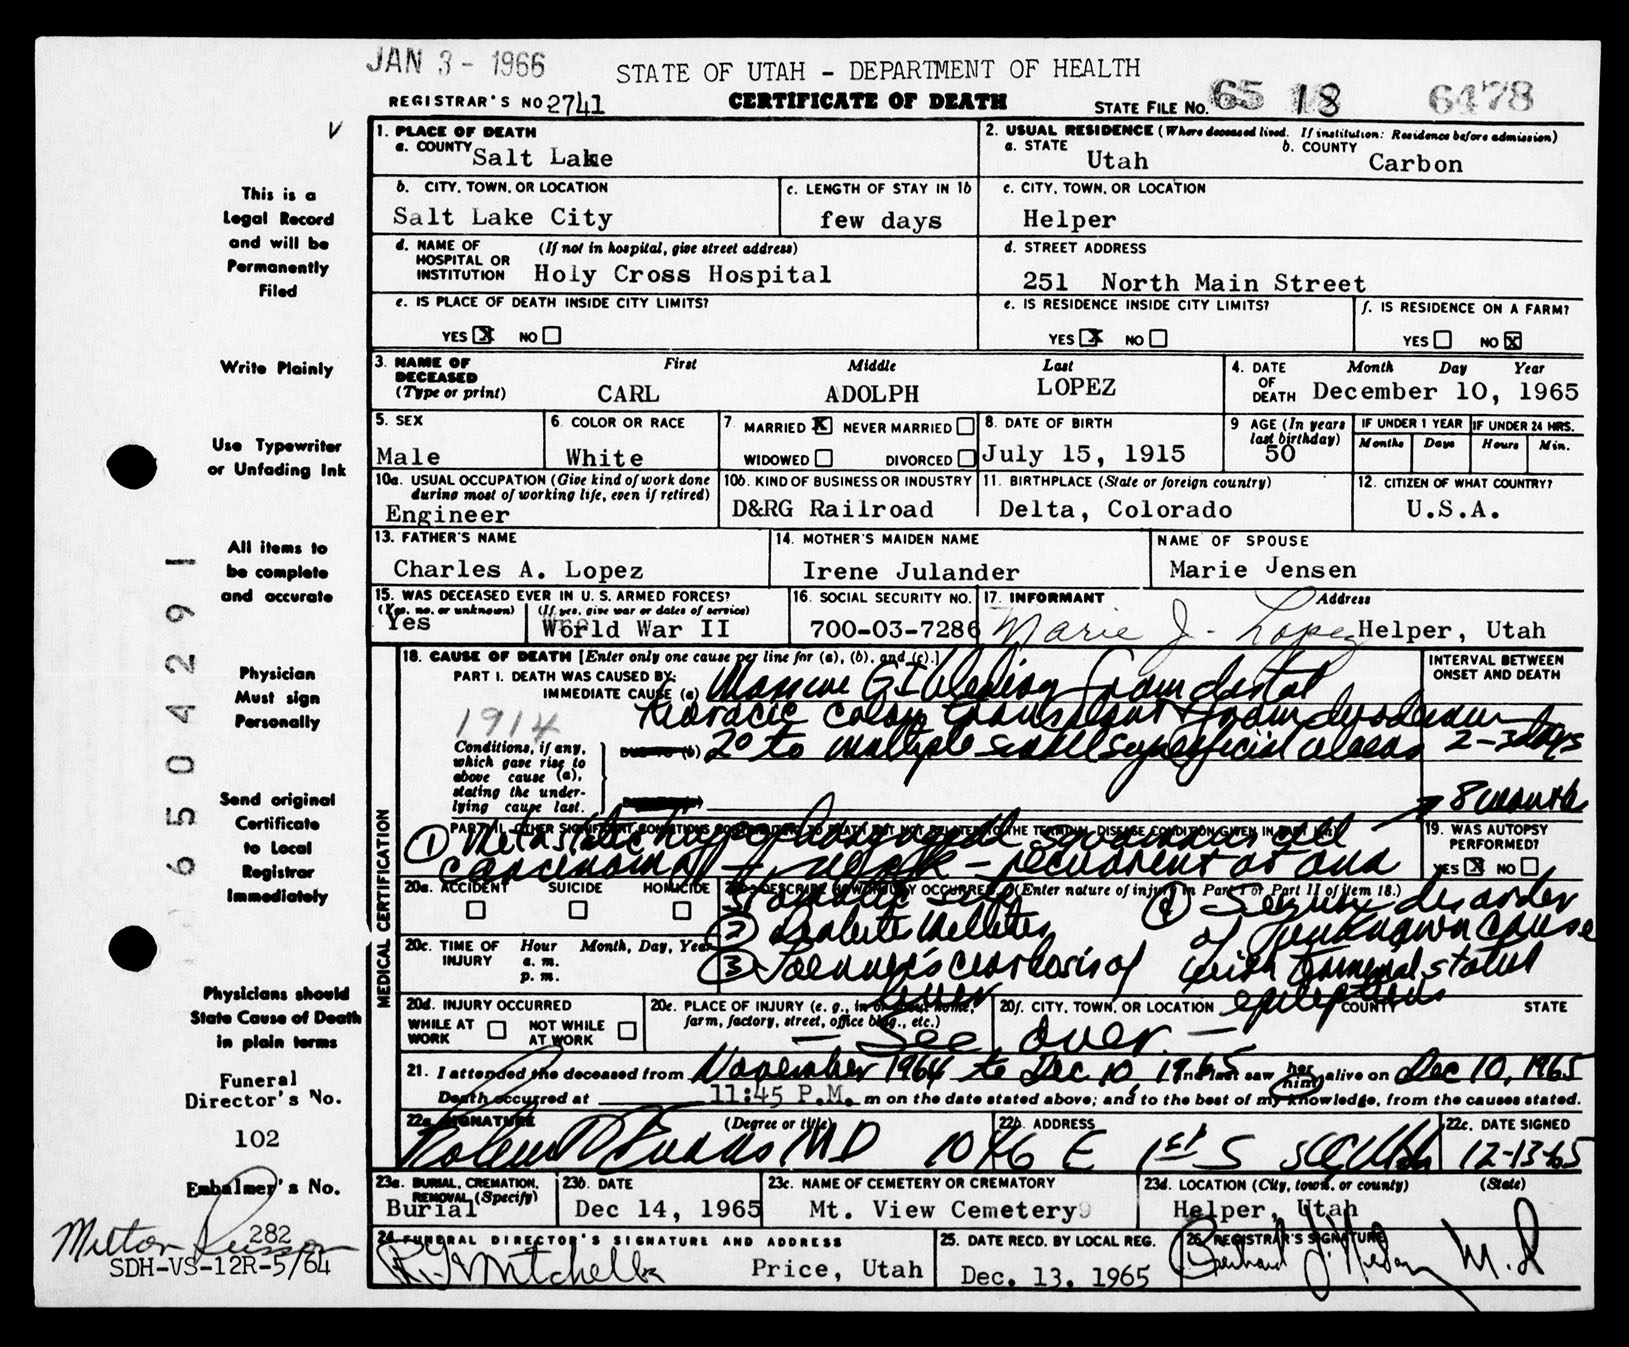 JAN 3 - 1966
STATE OF UTAH - DEPARTMENT OF HEALTH
REGISTRAR'S NO 2741
CERTIFICATE OF DEATH
STATE FILE NO. 65 18 6478
1. PLACE OF DEATH
a. COUNTY Salt Lake
2. USUAL RESIDENCE (Where deceased lived. If institution: Residence before admission)
a. STATE Utah
b. COUNTY Carbon
b. CITY, TOWN, OR LOCATION
Salt Lake City
c. LENGTH OF STAY IN 1b
few days
c. CITY, TOWN, OR LOCATION
Helper
d. NAME OF HOSPITAL OR INSTITUTION (If not in hospital, give street address)
Holy Cross Hospital
d. STREET ADDRESS
251 North Main Street
e. IS PLACE OF DEATH INSIDE CITY LIMITS?
YES X NO
e. IS RESIDENCE INSIDE CITY LIMITS?
YES X NO
f. IS RESIDENCE ON A FARM?
YES NO X
3. NAME OF DECEASED (Type or print)
First Middle Last
CARL ADOLPH LOPEZ
4. DATE OF DEATH
Month Day Year
December 10, 1965
5. SEX
Male
6. COLOR OR RACE
White
7. MARRIED X NEVER MARRIED
WIDOWED DIVORCED
8. DATE OF BIRTH
July 15, 1915
9 AGE (In years last birthday)
50
IF UNDER 1 YEAR
Months Days
IF UNDER 24 HRS.
Hours Min.
10a. USUAL OCCUPATION (Give kind of work done during most of working life, even if retired)
Engineer
10b. KIND OF BUSINESS OR INDUSTRY
D&RG Railroad
11. BIRTHPLACE (State or foreign country)
Delta, Colorado
12. CITIZEN OF WHAT COUNTRY?
U.S.A.
13. FATHER'S NAME
Charles A. Lopez
14. MOTHER'S MAIDEN NAME
Irene Julander
NAME OF SPOUSE
Marie Jensen
15. WAS DECEASED EVER IN U.S. ARMED FORCES?
(Yes, no, or unknown)
Yes
(If yes, give war or dates of service)
World War II
16. SOCIAL SECURITY NO.
700-03-7286
17. INFORMANT Address
Marie J. Lopez Helper, Utah
18. CAUSE OF DEATH [Enter only one cause per line for (a), (b), and (c).]
PART I. DEATH WAS CAUSED BY:
IMMEDIATE CAUSE (a) Massive GI bleeding from distal
thoracic colon
1914
Conditions, if any, which gave rise to above cause (a), stating the underlying cause last.
DUE TO (b) 2° to multiple small superficial ulcers
INTERVAL BETWEEN ONSET AND DEATH
2-3 days
8 months
PART II. OTHER SIGNIFICANT CONDITIONS CONTRIBUTING TO DEATH BUT NOT RELATED TO THE TERMINAL DISEASE CONDITION GIVEN IN PART I(a)
1 Metastatic hypopharyngeal squamous cell
carcinoma - neck - recurrent at and
19. WAS AUTOPSY PERFORMED?
YES X NO
20a. ACCIDENT SUICIDE HOMICIDE
20b. DESCRIBE HOW INJURY OCCURRED. (Enter nature of injury in Part I or Part II of item 18.)
2 Diabetes Mellitus
3 Laennec's cirrhosis of liver
4 Seizure disorder
of unknown cause
with terminal status
epilepticus
20c. TIME OF INJURY
Hour Month, Day, Year
a. m.
p. m.
20d. INJURY OCCURRED
WHILE AT WORK NOT WHILE AT WORK
20e. PLACE OF INJURY (e. g., in or about home, farm, factory, street, office bldg., etc.)
20f. CITY, TOWN, OR LOCATION COUNTY STATE
— See over —
21. I attended the deceased from November 1964 to Dec 10, 1965 and last saw her him alive on Dec 10, 1965
Death occurred at 11:45 P.M. m on the date stated above; and to the best of my knowledge, from the causes stated.
22a. SIGNATURE (Degree or title)
Robert R Evans, MD
22b. ADDRESS
1046 E 1st S SLC Utah
22c. DATE SIGNED
12-13-65
23a. BURIAL, CREMATION, REMOVAL (Specify)
Burial
23b. DATE
Dec 14, 1965
23c. NAME OF CEMETERY OR CREMATORY
Mt. View Cemetery
23d. LOCATION (City, town, or county) (State)
Helper, Utah
24 FUNERAL DIRECTOR'S SIGNATURE AND ADDRESS
Mitchell
Price, Utah
25. DATE RECD. BY LOCAL REG.
Dec. 13, 1965
26. REGISTRAR'S SIGNATURE
M.D
MEDICAL CERTIFICATION
This is a
Legal Record
and will be
Permanently
Filed
Write Plainly
Use Typewriter
or Unfading Ink
All items to
be complete
and accurate
Physician
Must sign
Personally
Send original
Certificate
to Local
Registrar
Immediately
Physicians should
State Cause of Death
in plain terms
Funeral
Director's No.
102
Embalmer's No.
282
Milton
SDH-VS-12R-5/64
6504291